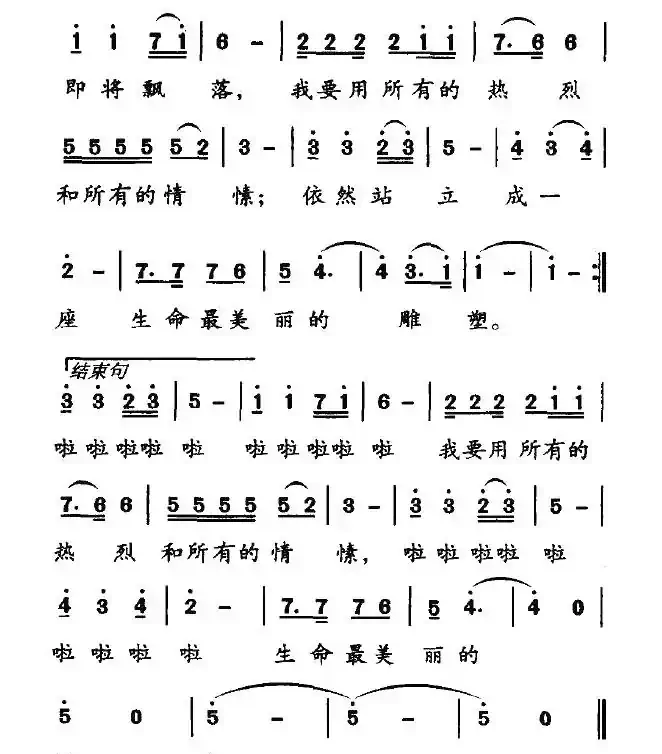 1 1 7 1 | 6 - | 2 2 2 2 1 1 | 7. 6 6 |
即将飘落，我要用所有的热烈
5 5 5 5 5 2 | 3 - | 3 3 2 3 | 5 - | 4 3 4 |
和所有的情愫；依然站立成一
2 - | 7. 7 7 6 | 5 4. | 4 3. 1 | 1 - | 1 - :||
座生命最美丽的雕塑。
结束句
3 3 2 3 | 5 - | 1 1 7 1 | 6 - | 2 2 2 2 1 1 |
啦啦啦啦啦啦啦啦啦啦我要用所有的
7. 6 6 | 5 5 5 5 5 2 | 3 - | 3 3 2 3 | 5 - |
热烈和所有的情愫，啦啦啦啦啦
4 3 4 | 2 - | 7. 7 7 6 | 5 4. | 4 0 |
啦啦啦啦生命最美丽的
5 0 | 5 - | 5 - | 5 0 ||